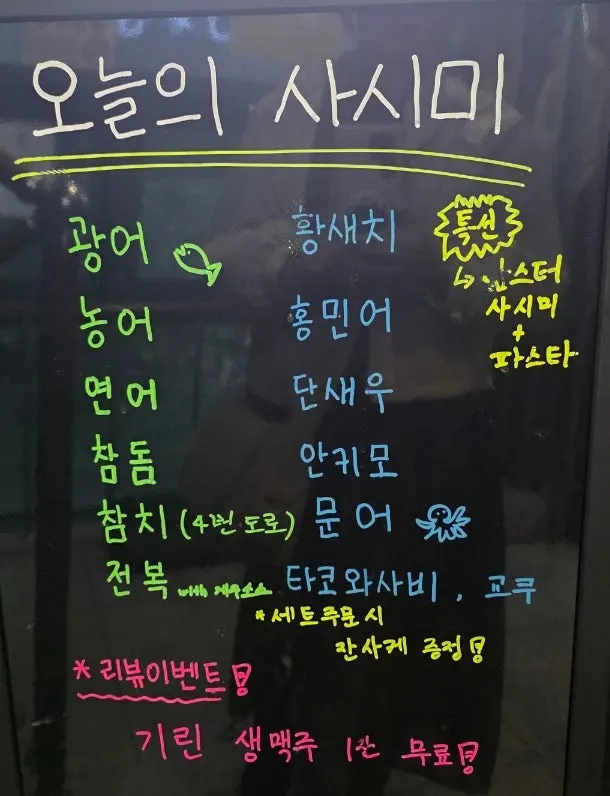 오늘의 사시미
광어
농어
연어
참돔
참치 (4번 도로)
전복 with 게우소스
황새치
홍민어
단새우
안키모
문어
타코와사비, 교쿠
특선
사시미
+
파스타
*세트주문 시
잔사케 증정!
*리뷰이벤트!
기린 생맥주 1잔 무료!